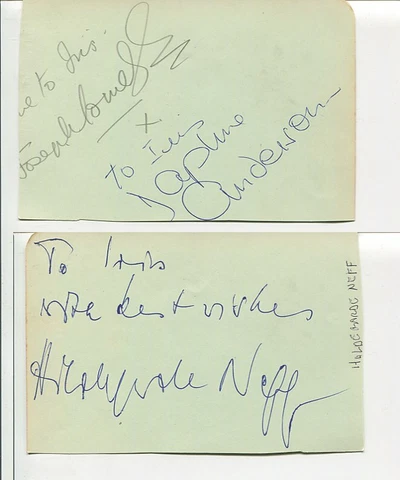 to Iris.
Joseph Tomelty
x
to Iris
Daphne
Anderson
To Iris
with best wishes
Hildegarde Neff
HILDEGARDE NEFF